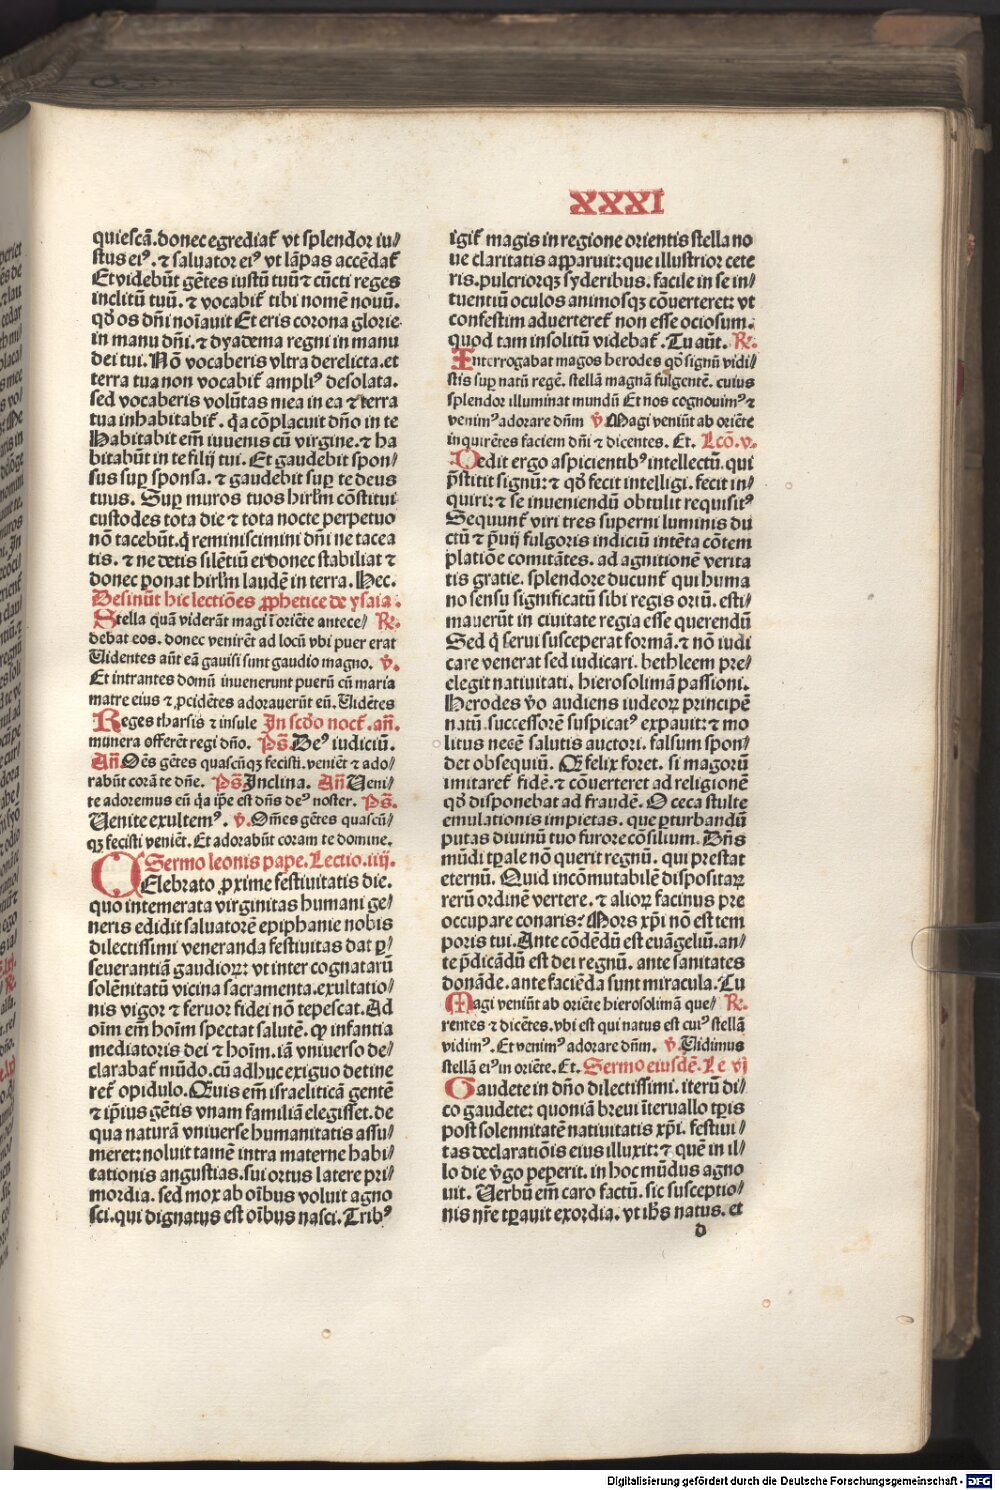 XXXI
quiescā. donec egrediat̄ vt splendor iu⸗
stus eiꝰ. ⁊ saluator eiꝰ vt lāpas accēdat̄
Et videbūt gētes iustū tuū ⁊ cūcti reges
inclitū tuū. ⁊ vocabit̄ tibi nomē nouū.
qd̄ os dn̄i noīauit Et eris corona glorie
in manu dn̄i. ⁊ dyadema regni in manu
dei tui. Nō vocaberis vltra derelicta. et
terra tua non vocabit̄ ampliꝰ desolata.
sed vocaberis volūtas mea in ea ⁊ terra
tua inhabitabit̄. q̄a cōplacuit dn̄o in te
Habitabit em̄ iuuenis cū virgine. ⁊ ha
bitabūt in te filij tui. Et gaudebit spon⸗
sus suꝑ sponsa. ⁊ gaudebit suꝑ te deus
tuus. Suꝑ muros tuos hirlm̄ cōstitui
custodes tota die ⁊ tota nocte perpetuo
nō tacebūt. q̄ reminiscimini dn̄i ne tacea
tis. ⁊ ne detis silētiū ei donec stabiliat ⁊
donec ponat hirlm̄ laudē in terra. Hec.
Desinūt hic lectiōes ꝓphetice de ysaia.
Stella quā viderāt magi ī oriēte antece⸗ R̄.
debat eos. donec venirēt ad locū vbi puer erat
Uidentes aūt eā gauisi sunt gaudio magno. v̄.
Et intrantes domū inuenerunt puerū cū maria
matre eius ⁊ ꝓcidētes adorauerūt eū. Uidētes
Reges tharsis ⁊ insule In scd̄o noct̄. an̄.
munera offerēt regi dn̄o. Ps̄. Deꝰ iudiciū.
An̄ Oēs gētes quascūqꝫ fecisti. veniēt ⁊ ado⸗
rabūt corā te dn̄e. Ps̄ Inclina. An̄ Ueni⸗
te adoremus eū q̄a ip̄e est dn̄s deꝰ noster. Ps̄.
Uenite exultemꝰ. v̄. Om̄es gētes quascū⸗
qꝫ fecisti veniēt. Et adorabūt coram te domine.
Sermo leonis pape. Lectio. iiij.
CElebrato ꝓxime festiuitatis die.
quo intemerata virginitas humani ge⸗
neris edidit saluatorē epiphanie nobis
dilectissimi veneranda festiuitas dat ꝑ⸗
seuerantiā gaudioꝝ: vt inter cognatarū
solēnitatū vicina sacramenta. exultatio⸗
nis vigor ⁊ feruor fidei nō tepescat. Ad
oīm em̄ hoīm spectat salutē. qꝙ infantia
mediatoris dei ⁊ hoīm. iā vniuerso de⸗
clarabat̄ mūdo. cū adhuc exiguo detine
ret̄ opidulo. Quis em̄ israeliticā gentē
⁊ ip̄ius gētis vnam familiā elegisset. de
qua naturā vniuerse humanitatis assu⸗
meret: noluit tamē intra materne habi⸗
tationis angustias. sui ortus latere pri⸗
mordia. sed mox ab oībus voluit agno
sci. qui dignatus est oībus nasci. Tribꝰ
igit̄ magis in regione orientis stella no
ue claritatis apparuit: que illustrior cete
ris. pulcriorqꝫ syderibus. facile in se in⸗
tuentiū oculos animosqꝫ cōuerteret: vt
confestim aduerteret̄ non esse ociosum.
quod tam insolitū videbat̄. Tu aūt. R̄.
Interrogabat magos herodes qd̄ signū vidi⸗
stis suꝑ natū regē. stellā magnā fulgentē. cuius
splendor illuminat mundū Et nos cognouimꝰ ⁊
venimꝰ adorare dn̄m v̄. Magi veniūt ab oriēte
inquirētes faciem dn̄i ⁊ dicentes. Et. Lcō. v.
Dedit ergo aspicientibꝰ intellectū. qui
p̄stitit signū: ⁊ qd̄ fecit intelligi. fecit in⸗
quiri: ⁊ se inueniendū obtulit requisitꝰ
Sequunt̄ viri tres superni luminis du
ctū ⁊ p̄uij fulgoris indiciū intēta cōtem
platiōe comitātes. ad agnitionē verita
tis gratie. splendore ducunt̄ qui huma
no sensu significatū sibi regis ortū. esti⸗
mauerūt in ciuitate regia esse querendū
Sed q̄ serui susceperat formā. ⁊ nō iudi
care venerat sed iudicari. bethleem pre⸗
elegit natiuitati. hierosolimā passioni.
Herodes v̄o audiens iudeoꝝ principē
natū. successorē suspicatꝰ expauit: ⁊ mo
litus necē salutis auctori. falsum spon⸗
det obsequiū. O felix foret. si magorū
imitaret̄ fidē. ⁊ cōuerteret ad religionē
qd̄ disponebat ad fraudē. O ceca stulte
emulationis impietas. que ꝑturbandū
putas diuinū tuo furore cōsilium. Dn̄s
mūdi tꝑale nō querit regnū. qui prestat
eternū. Quid incōmutabilē dispositaꝝ
rerū ordinē vertere. ⁊ alioꝝ facinus pre
occupare conaris? Mors xp̄i nō est tem
poris tui. Ante cōdēdū est euāgeliū. an⸗
te p̄dicādū est dei regnū. ante sanitates
donāde. ante faciēda sunt miracula. Tu
Magi veniūt ab oriēte hierosolimā que⸗ R̄.
rentes ⁊ dicētes. vbi est qui natus est cuiꝰ stellā
vidimꝰ. Et venimꝰ adorare dn̄m. v̄. Uidimus
stellā eiꝰ in oriēte. Et. Sermo eiusdē. Le vj
Gaudete in dn̄o dilectissimi. iterū di⸗
co gaudete: quoniā breui īteruallo tꝑis
post solennitatē natiuitatis xp̄i. festiui⸗
tas declaratiōis eius illuxit: ⁊ quē in il⸗
lo die v̄go peperit. in hoc mūdus agno
uit. Uerbū em̄ caro factū. sic susceptio⸗
nis nr̄e tꝑauit exordia. vt ih̄s natus. et
d
Digitalisierung gefördert durch die Deutsche Forschungsgemeinschaft - DFG